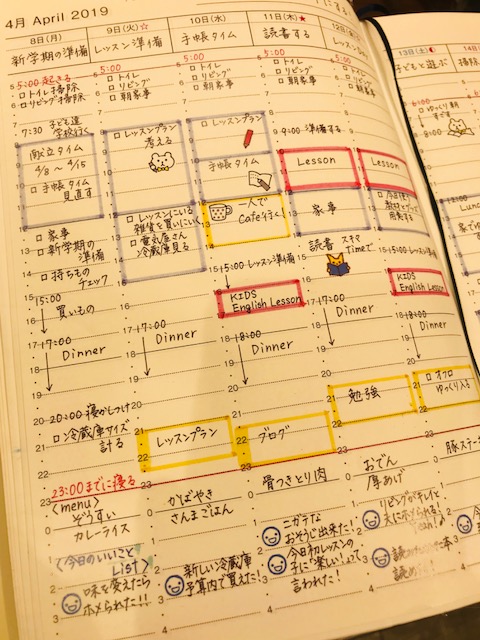 4月 April 2019
8日(月)
新学期の準備
5:00 起きる
ロトイレ掃除
ロリビング掃除
7:30 子ども達
学校行く
献立タイム
4/8 ~ 4/15
ロ手帳タイム
見直す
ロ家事
ロ新学期の
準備
ロ持ちもの
チェック
15:00
買いもの
17:00
Dinner
20:00 寝かしつけ
ロ冷蔵庫サイズ
計る
23:00までに寝る
<menu>
ぞうすい
カレーライス
<今日のいいこと
List>
味を変えたら
ホメられた!!
9日(火)☆
レッスン準備
5:00
ロトイレ
ロリビング
ロ朝家事
ロレッスンプラン
考える
ロレッスンにいる
雑貨を買いにいく
ロ電気屋さん
冷蔵庫見る
17:00
Dinner
レッスンプラン
かばやき
さんまごはん
新しい冷蔵庫
予算内で買えた!
10日(水)
手帳タイム
5:00
ロトイレ
ロリビング
ロ朝家事
ロレッスンプラン
手帳タイム
一人で
Cafe行く!
15:00 レッスン準備
KIDS
English Lesson
18:00
Dinner
ブログ
骨つきとり肉
ニガテな
おそうじ出来た!
今日初レッスンの
子に「楽しい!」って
言われた!
11日(木)★
読書する
5:00
ロトイレ
ロリビング
ロ朝家事
9:00 準備する
Lesson
家事
読書 スキマ
Timeで
17:00
Dinner
勉強
おでん
厚あげ
リビングがキレイと
夫にホメられる!
Yeah!
12日(金)
5:00
ロトイレ
ロリビング
ロ朝家事
Lesson
15:00 レッスン準備
KIDS
English Lesson
18:00
Dinner
ロオフロ
ゆっくり入る
13日(土)
子どもと遊ぶ
6:00
ロゆっくり朝
すごす
8:00
12:00
Lunch
18:00
14日